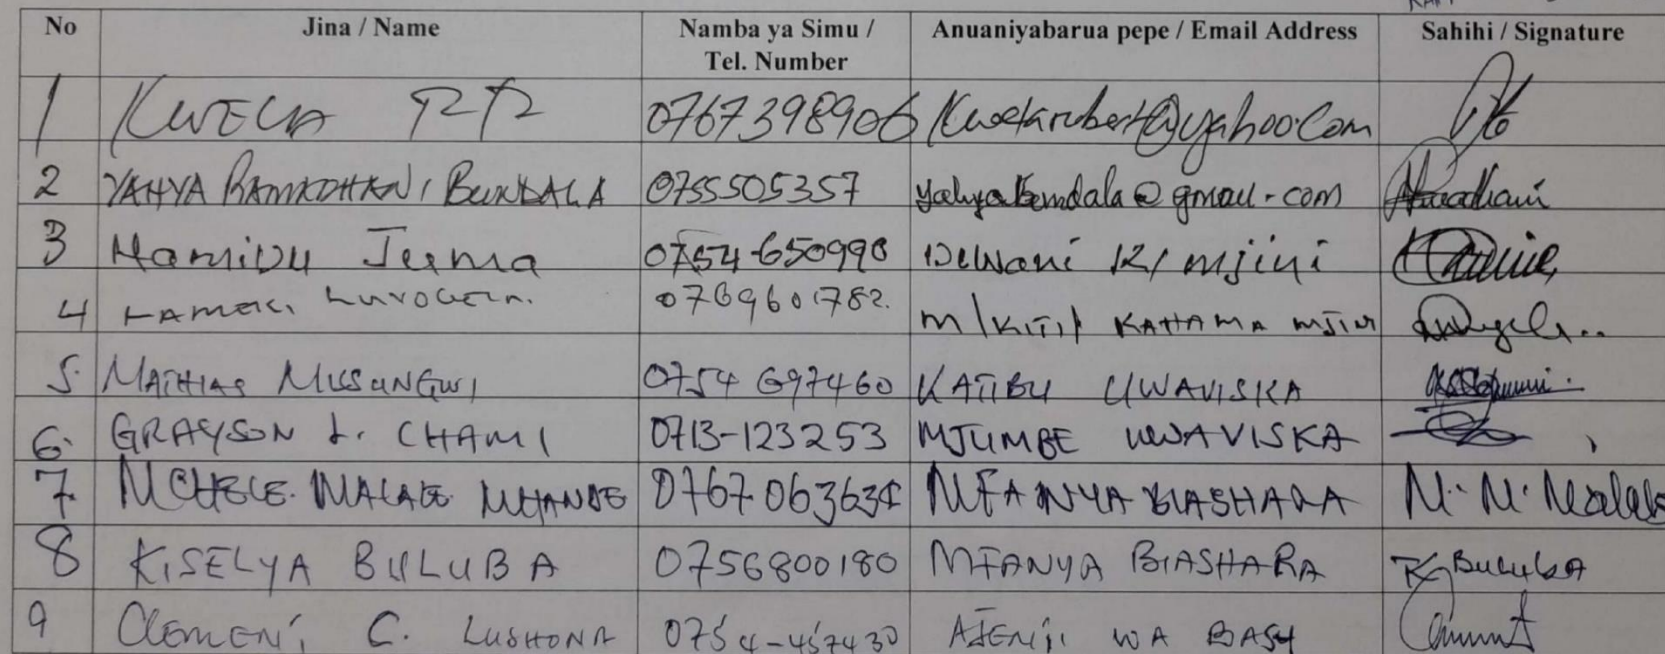 No Jina / Name Namba ya Simu / Tel. Number Anuaniyabarua pepe / Email Address Sahihi / Signature
1 KWEKA 0767398906 Kwekarobert@yahoo.com
2 YAHYA RAMADHANI BUNDALA 0755505357 yahyabundala@gmail.com
3 HamiDu Juma 0754-650990 Diwani mjini
4 LAMECK 0769601782. M/KITI KAHAMA MJINI
5. MATHIAS MUSUNGWI 0754 697460 KATIBU UWAVISKA
6. GRAYSON L. CHAMI 0713-123253 MJUMBE UWAVISKA
7. MCHELE MALALE MHANDE 0767 063634 MFANYA BIASHARA M. M. Malale
8 KISELYA BULUBA 0756800180 MFANYA BIASHARA K Buluba
9 CLEMENT C. LUSHONA 0754-457430 AJENTI WA BASI